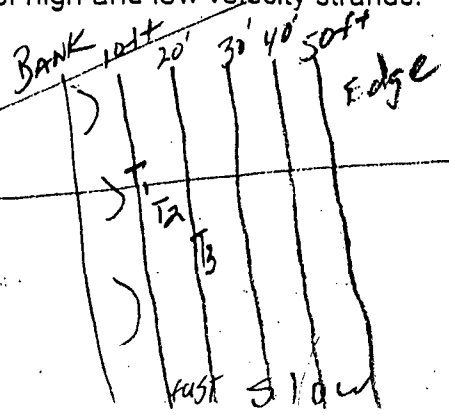 of high and low velocity strands.
BANK 10ft 20' 30' 40' 50ft
Edge
T1
T2
T3
fast slow